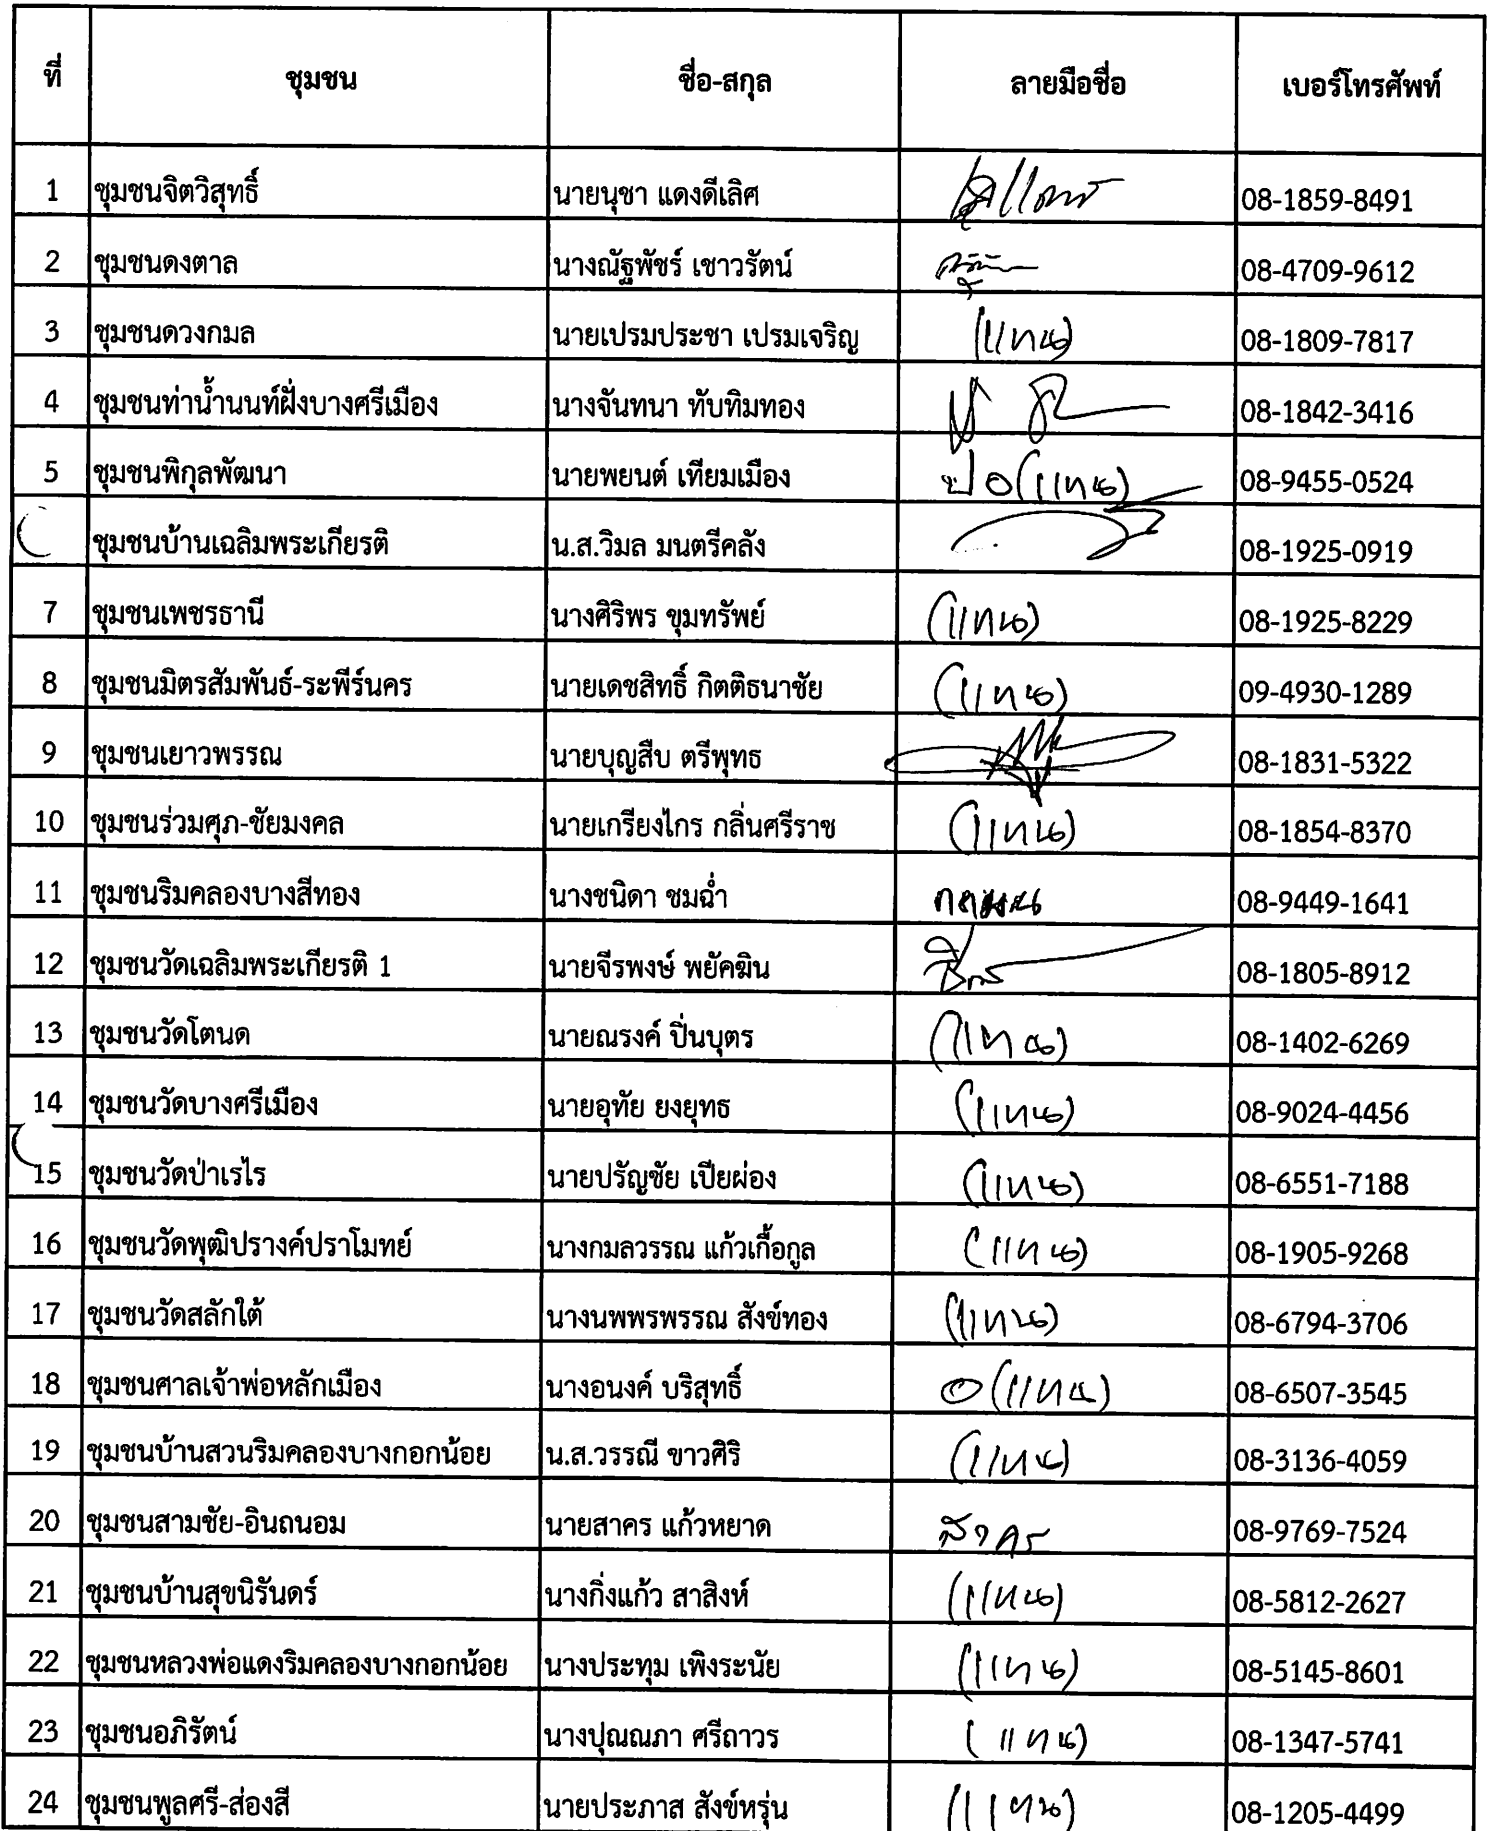 ที่ ชุมชน ชื่อ-สกุล ลายมือชื่อ เบอร์โทรศัพท์
1 ชุมชนจิตวิสุทธิ์ นายนุชา แดงดีเลิศ 08-1859-8491
2 ชุมชนดงตาล นางณัฐพัชร์ เชาวรัตน์ 08-4709-9612
3 ชุมชนดวงกมล นายเปรมประชา เปรมเจริญ (แทน) 08-1809-7817
4 ชุมชนท่าน้ำนนท์ฝั่งบางศรีเมือง นางจันทนา ทับทิมทอง 08-1842-3416
5 ชุมชนพิกุลพัฒนา นายพยนต์ เทียมเมือง (แทน) 08-9455-0524
ชุมชนบ้านเฉลิมพระเกียรติ น.ส.วิมล มนตรีคลัง 08-1925-0919
7 ชุมชนเพชรธานี นางศิริพร ขุมทรัพย์ (แทน) 08-1925-8229
8 ชุมชนมิตรสัมพันธ์-ระพีร์นคร นายเดชสิทธิ์ กิตติธนาชัย (แทน) 09-4930-1289
9 ชุมชนเยาวพรรณ นายบุญสืบ ตรีพุทธ 08-1831-5322
10 ชุมชนร่วมศุภ-ชัยมงคล นายเกรียงไกร กลิ่นศรีราช (แทน) 08-1854-8370
11 ชุมชนริมคลองบางสีทอง นางชนิดา ชมฉ่ำ 08-9449-1641
12 ชุมชนวัดเฉลิมพระเกียรติ 1 นายจีรพงษ์ พยัคฆิน 08-1805-8912
13 ชุมชนวัดโตนด นายณรงค์ ปิ่นบุตร (แทน) 08-1402-6269
14 ชุมชนวัดบางศรีเมือง นายอุทัย ยงยุทธ (แทน) 08-9024-4456
15 ชุมชนวัดป่าเรไร นายปรัญชัย เปียผ่อง (แทน) 08-6551-7188
16 ชุมชนวัดพุฒิปรางค์ปราโมทย์ นางกมลวรรณ แก้วเกื้อกูล (แทน) 08-1905-9268
17 ชุมชนวัดสลักใต้ นางนพพรพรรณ สังข์ทอง (แทน) 08-6794-3706
18 ชุมชนศาลเจ้าพ่อหลักเมือง นางอนงค์ บริสุทธิ์ (แทน) 08-6507-3545
19 ชุมชนบ้านสวนริมคลองบางกอกน้อย น.ส.วรรณี ขาวศิริ (แทน) 08-3136-4059
20 ชุมชนสามชัย-อินถนอม นายสาคร แก้วหยาด สาคร 08-9769-7524
21 ชุมชนบ้านสุขนิรันดร์ นางกิ่งแก้ว สาสิงห์ (แทน) 08-5812-2627
22 ชุมชนหลวงพ่อแดงริมคลองบางกอกน้อย นางประทุม เพิงระนัย (แทน) 08-5145-8601
23 ชุมชนอภิรัตน์ นางปุณณภา ศรีถาวร (แทน) 08-1347-5741
24 ชุมชนพูลศรี-ส่องสี นายประภาส สังข์หรุ่น (แทน) 08-1205-4499